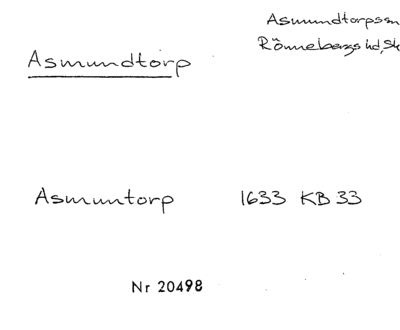 Asmundtorpssn
Rönnebergs hd, Sk
Asmundtorp
Asmuntorp 1633 KB 33
Nr 20498